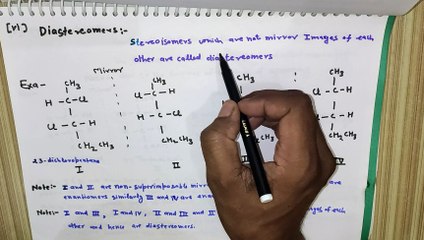 [VI] Diastereomers:-
Stereoisomers which are not mirror Images of each
other are called diastereomers
Exa- CH₃ Mirror CH₃ CH₃
H-C-Cl Cl-C-H
H-C-Cl
CH₂CH₃ CH₂CH₃ CH₂CH₃
2,3-dichloropentane
I II IV
Note:- I and II are non-superimposable mirror are
enantiomers similarly III and IV are
Note:- I and III, I and IV, II and III and II of each
other and hence are diastereomers.